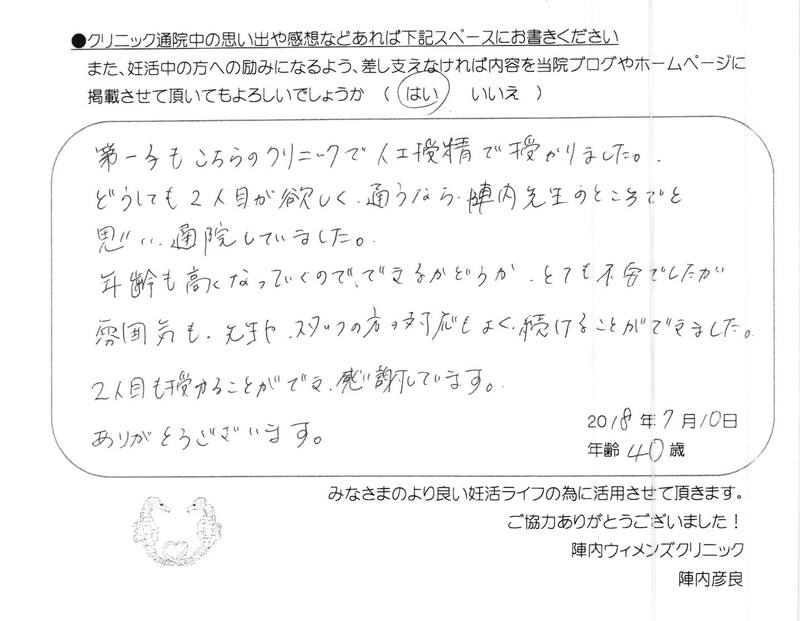 ●クリニック通院中の思い出や感想などあれば下記スペースにお書きください
また、妊活中の方への励みになるよう、差し支えなければ内容を当院ブログやホームページに
掲載させて頂いてもよろしいでしょうか （ はい　いいえ ）
第一子もこちらのクリニックで人工授精で授かりました。
どうしても2人目が欲しく、通うなら、陣内先生のところでと
思い、通院していました。
年齢も高くなっていくので、できるかどうか、とても不安でしたが
雰囲気も、先生や、スタッフの方の対応もよく、続けることができました。
2人目も授かることができ、感謝しています。
ありがとうございます。
2018年7月10日
年齢 40歳
みなさまのより良い妊活ライフの為に活用させて頂きます。
ご協力ありがとうございました！
陣内ウィメンズクリニック
陣内彦良